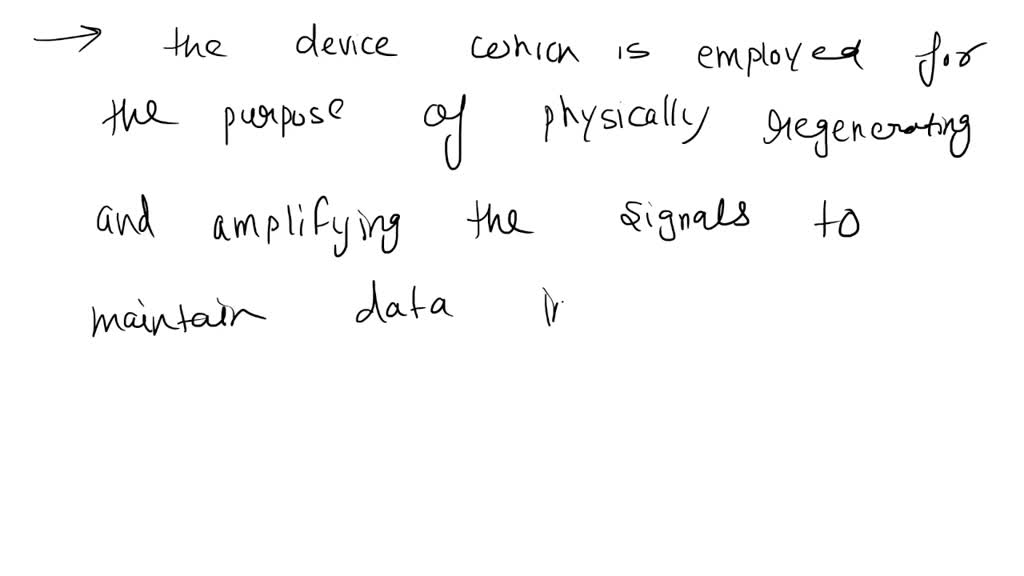 → the device which is employed for
the purpose of physically regenerating
and amplifying the signals to
maintain data